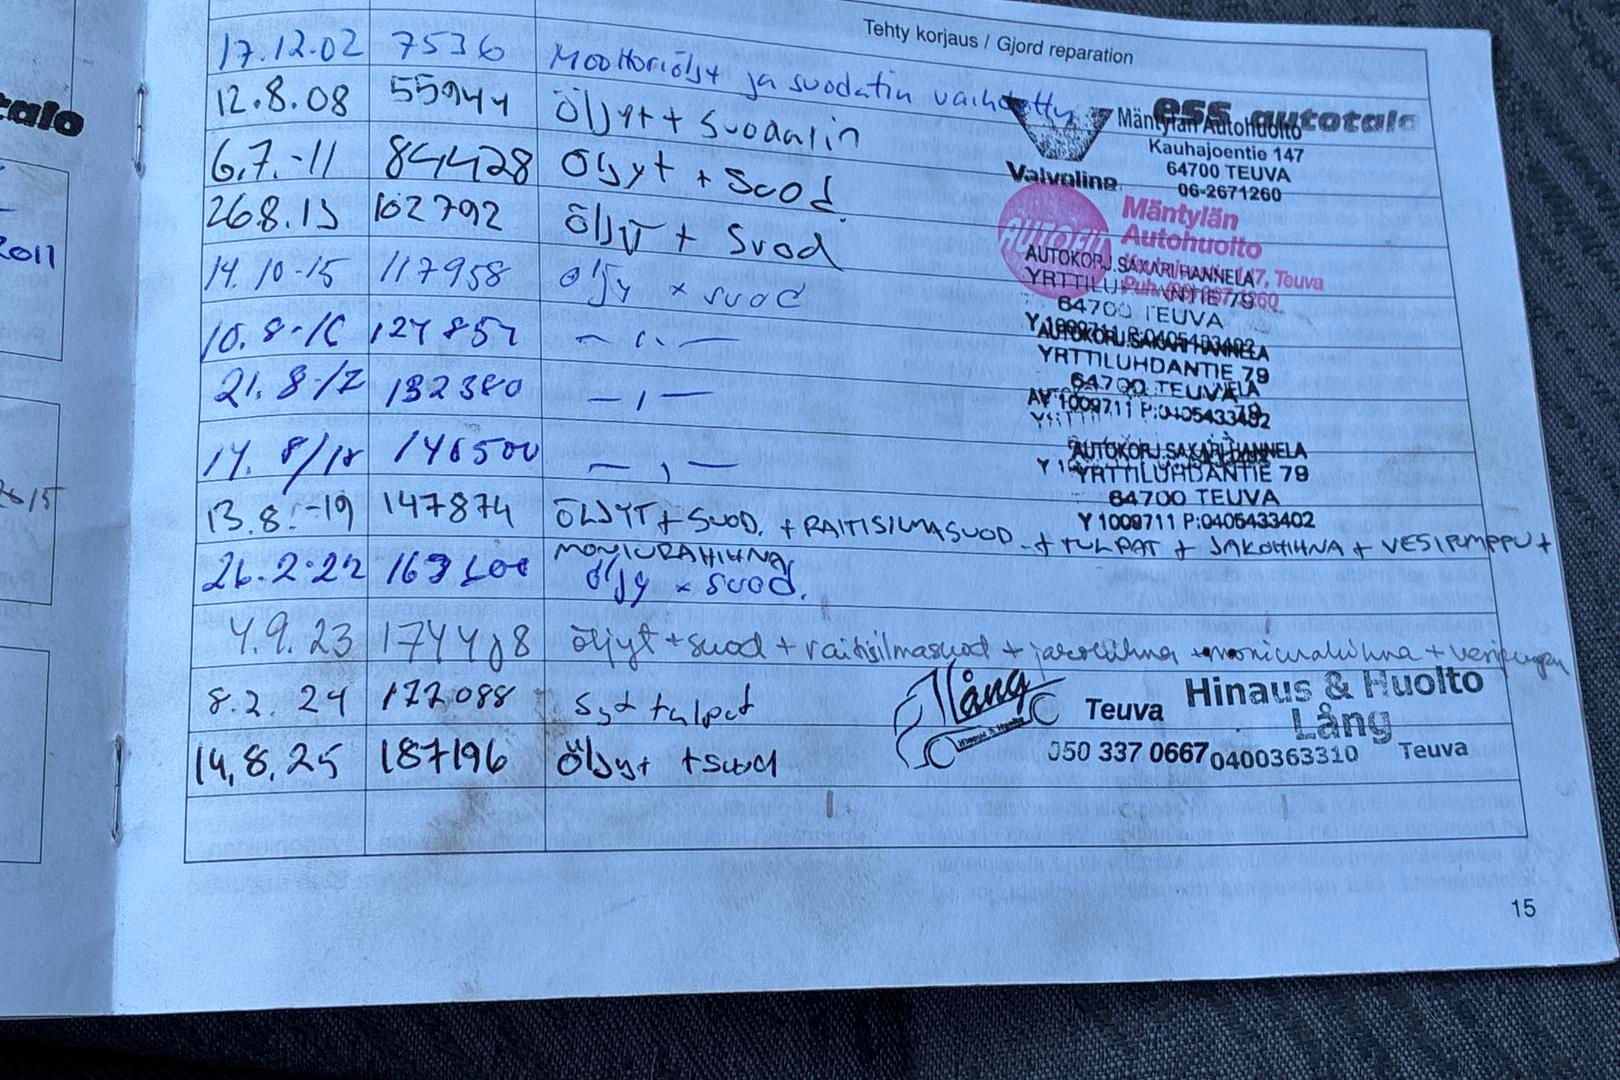 talo
2011
2015
Tehty korjaus / Gjord reparation
17.12.02 7536 Moottoriöljyt ja suodatin vaihdettu
ess autotalo
12.8.08 55944 Öljyt + Suodatin
Mäntylän Autohuolto
Kauhajoentie 147
64700 TEUVA
06-2671260
Valvoline
6.7.-11 84428 Öljyt + Suod.
AUTOFIT
Mäntylän
Autohuolto
147, Teuva
26.8.13 102792 öljyt + Suod
14.10-15 117958 öljy + suod
AUTOKORJ.SAKARI HANNELA
YRTTILUHDANTIE 79
64700 TEUVA
Y 1009711 P:0405433402
10.8-16 127852 – ,, –
AUTOKORJ.SAKARI HANNELA
YRTTILUHDANTIE 79
64700 TEUVA
1009711 P:0405433402
21.8-17 132380 – , –
14.8/18 146500 – , –
AUTOKORJ.SAKARI HANNELA
YRTTILUHDANTIE 79
64700 TEUVA
Y 1009711 P:0405433402
13.8.-19 147874 ÖLJYT + SUOD. + RAITISILMASUOD. + TULPAT + JAKOHIHNA + VESIPUMPPU +
MONIURAHIHNA
26.2.22 163600 öljy + suod.
4.9.23 öljyt + suod + raitisilmasuod + jakohihna + moniurahihna + vesipumppu
8.2.24 177088 Syt tulpat
Lång
Teuva
050 337 0667
Hinaus & Huolto
Lång
0400363310 Teuva
14.8.25 187196 Öljyt + suod
15